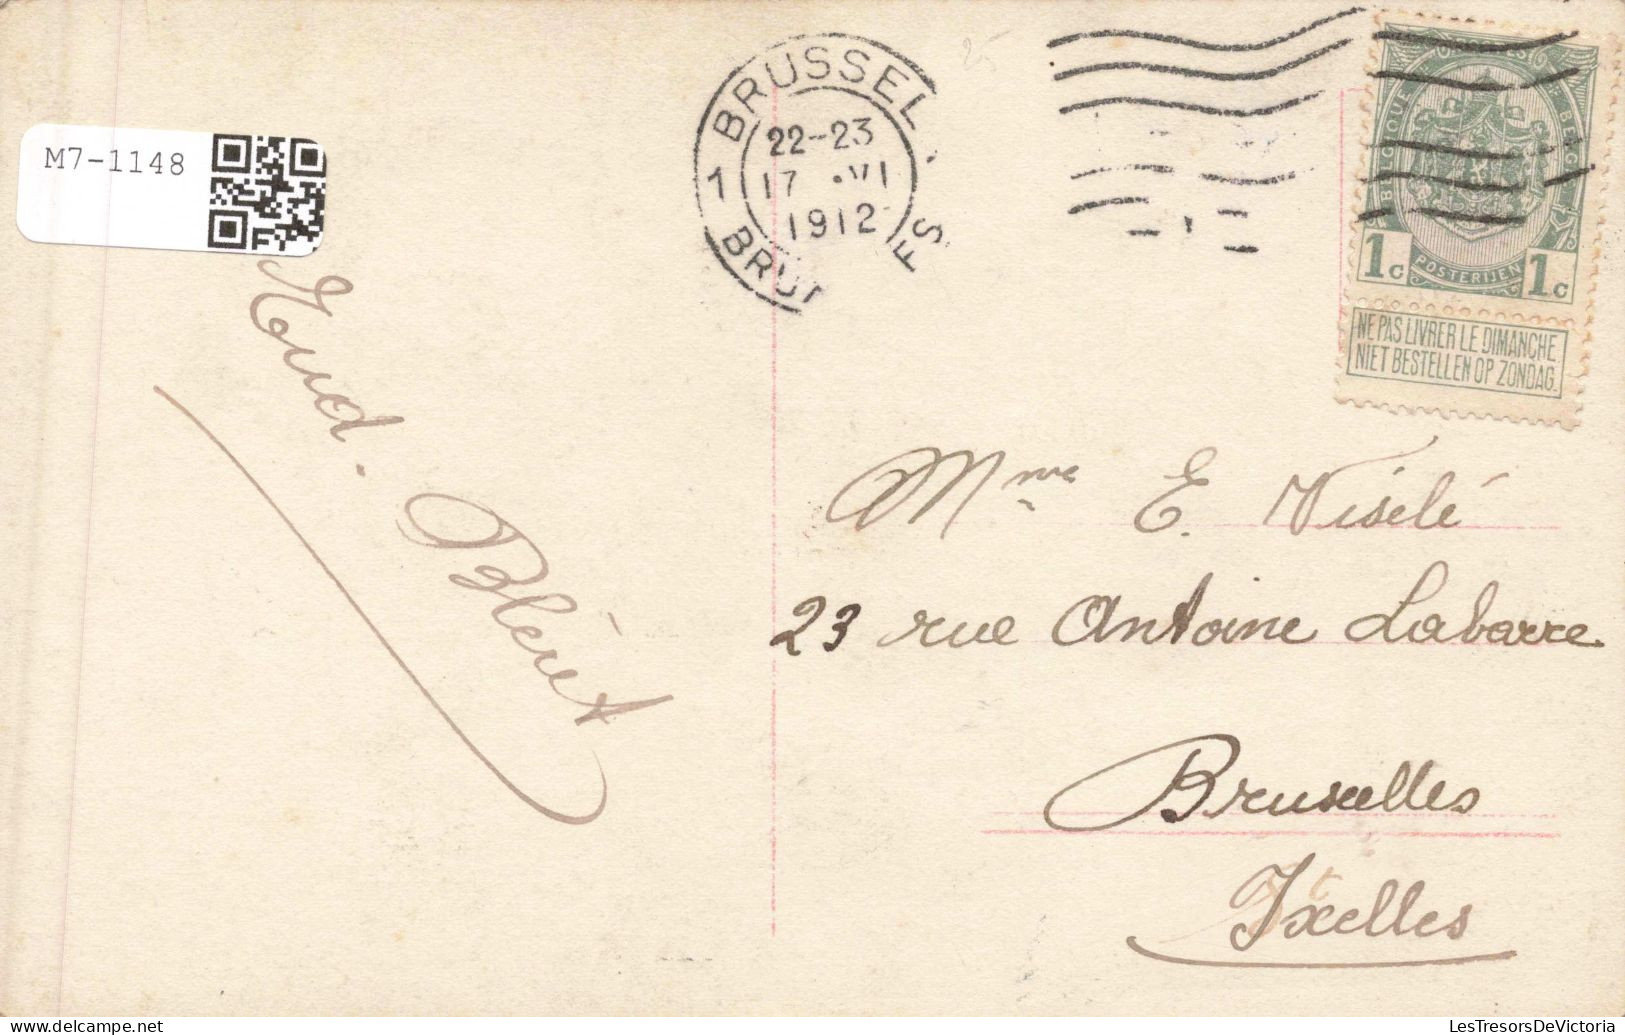 M7-1148
1 BRUSSEL
22-23
17 ·VI
1912
BRU ES
BELGIQUE BELGIË
1c POSTERIJEN 1c
NE PAS LIVRER LE DIMANCHE
NIET BESTELLEN OP ZONDAG.
Mme E. Viselé
23 rue Antoine Labarre
Bruxelles
Ixelles
delcampe.net
LesTresorsDeVictoria